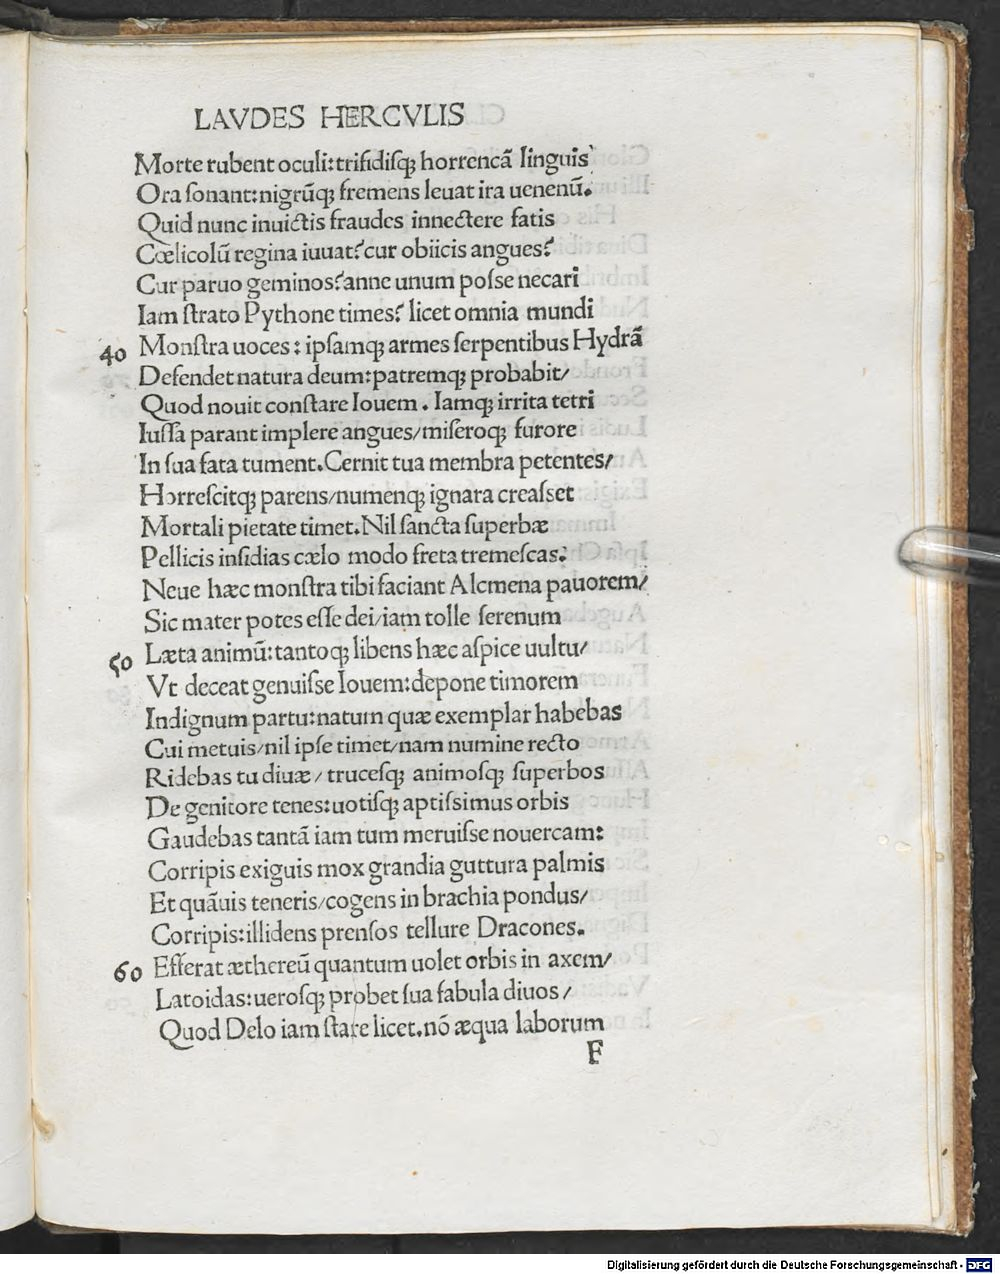 LAVDES HERCVLIS
Morte rubent oculi:trifidiſqꝫ horrencã linguis
Ora ſonant:nigrũqꝫ fremens leuat ira uenenũ.
Quid nunc inuictis fraudes innectere fatis
Cœlicolũ regina iuuat?cur obiicis angues?
Cur paruo geminos?anne unum poſſe necari
Iam ſtrato Pythone times? licet omnia mundi
40 Monſtra uoces: ipſamqꝫ armes ſerpentibus Hydrã
Defendet natura deum:patremqꝫ probabit/
Quod nouit conſtare Iouem. Iamqꝫ irrita tetri
Iuſſa parant implere angues/miſeroqꝫ furore
In ſua fata tument.Cernit tua membra petentes/
Horreſcitqꝫ parens/numenqꝫ ignara creaſſet
Mortali pietate timet.Nil ſancta ſuperbæ
Pellicis inſidias cælo modo freta tremeſcas:
Neue hæc monſtra tibi faciant Alcmena pauorem/
Sic mater potes eſſe dei/iam tolle ſerenum
50 Læta animũ:tantoqꝫ libens hæc aſpice uultu/
Vt deceat genuiſſe Iouem:depone timorem
Indignum partu:natum quæ exemplar habebas
Cui metuis/nil ipſe timet/nam numine recto
Ridebas tu diuæ/ truceſqꝫ animoſqꝫ ſuperbos
De genitore tenes:uotiſqꝫ aptiſſimus orbis
Gaudebas tantã iam tum meruiſſe nouercam:
Corripis exiguis mox grandia guttura palmis
Et quãuis teneris/cogens in brachia pondus/
Corripis:illidens prenſos tellure Dracones.
60 Efferat æthereũ quantum uolet orbis in axem/
Latoidas:ueroſqꝫ probet ſua fabula diuos /
Quod Delo iam ſtare licet.nõ æqua laborum
F
Digitalisierung gefördert durch die Deutsche Forschungsgemeinschaft - DFG